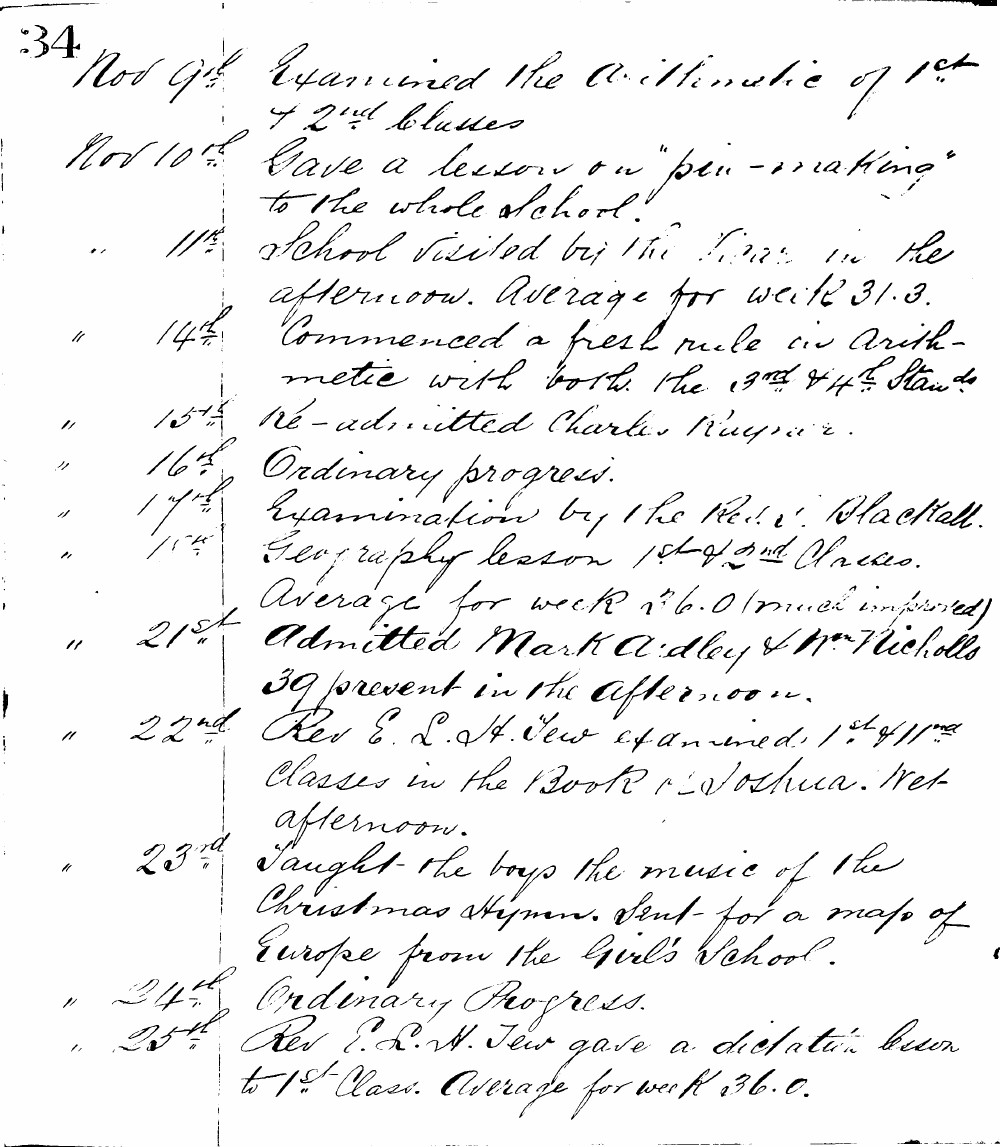 34
Nov 9th Examined the Arithmetic of 1st
& 2nd Classes
Nov 10th Gave a lesson on "pin-making"
to the whole School.
" 11th School visited by the Vicar in the
afternoon. Average for week 31.3.
" 14th Commenced a fresh rule in Arith-
metic with both the 3rd & 4th Stands
" 15th Re-admitted Charles
" 16th Ordinary progress.
" 17th Examination by the Rev. Blackall.
" Geography lesson 1st & 2nd Classes.
Average for week 36.0 (much improved)
" 21st Admitted Mark Ardley & Wm Nicholls
39 present in the afternoon.
" 22nd Rev E. L. H. Tew examined 1st & 11nd
Classes in the Book of Joshua. Wet
afternoon.
" 23rd Taught the boys the music of the
Christmas Hymn. Sent for a map of
Europe from the Girl's School.
" 24th Ordinary Progress.
" 25th Rev E. L. H. Tew gave a dictation lesson
to 1st Class. Average for week 36.0.